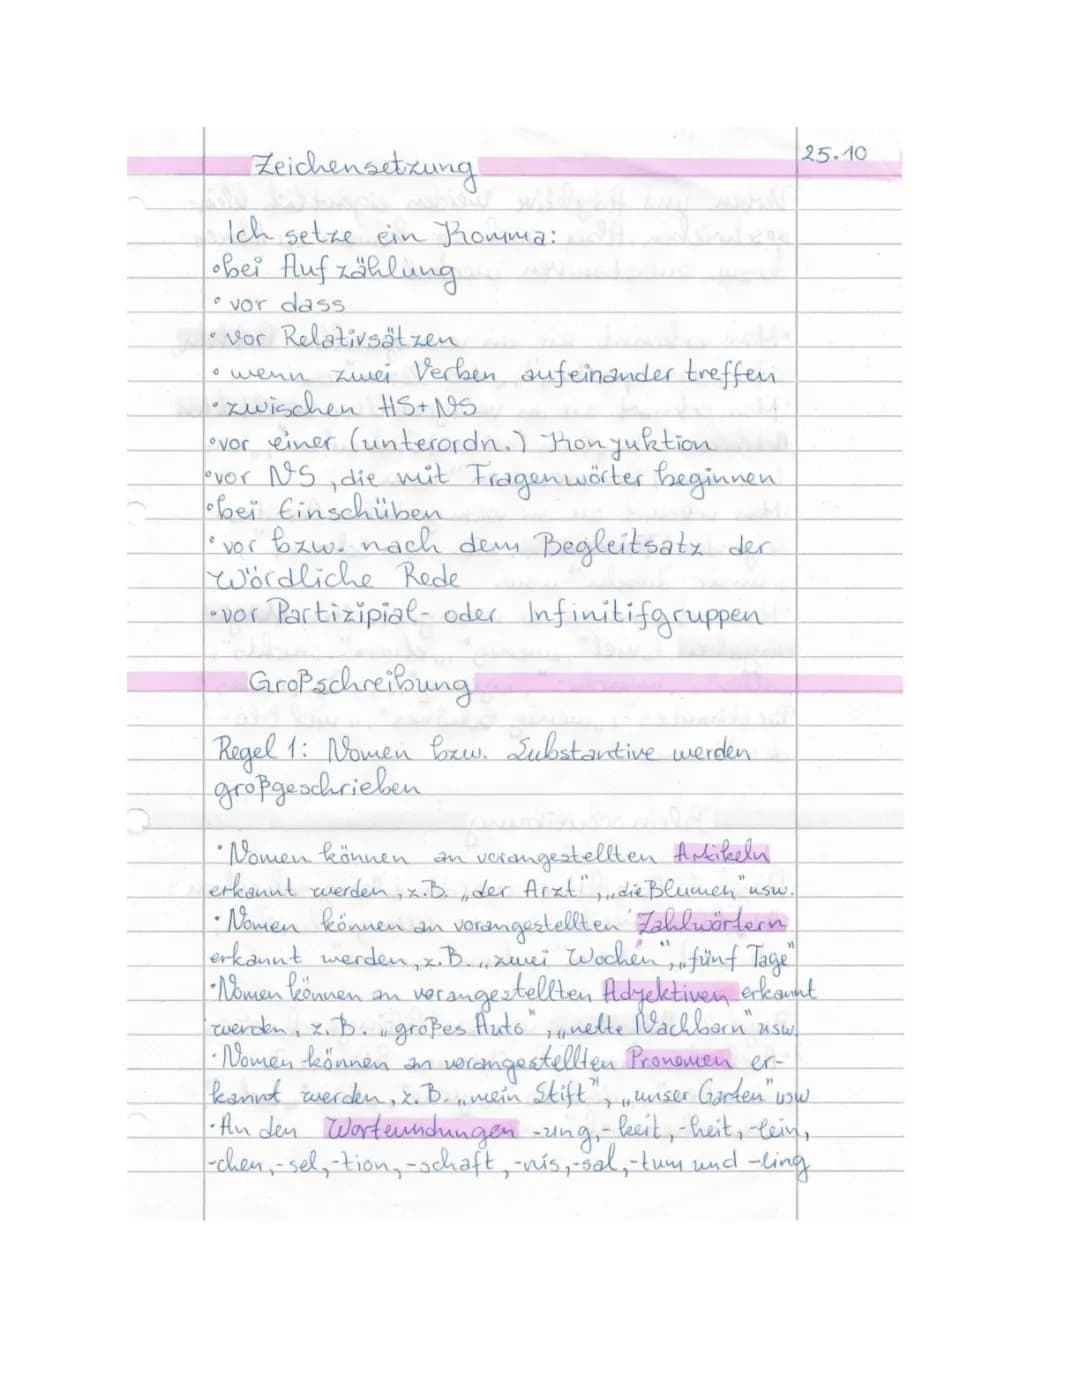 25.10
Zeichensetzung
Ich setze ein Komma:
• bei Aufzählung
• vor dass
• vor Relativsätzen
• wenn zwei Verben aufeinander treffen
• zwischen HS+NS
• vor einer (unterordn.) Konjuktion
• vor NS, die mit Fragenwörter beginnen
• bei Einschüben
• vor bzw. nach dem Begleitsatz der
Wördliche Rede
• vor Partizipial- oder Infinitifgruppen
Großschreibung
Regel 1: Nomen bzw. Substantive werden
großgeschrieben
• Nomen können an vorangestellten Artikeln
erkannt werden, z.B. „der Arzt", „die Blumen" usw.
• Nomen können an vorangestellten Zahlwörtern
erkannt werden, z.B. „zwei Wochen", „fünf Tage"
• Nomen können an vorangestellten Adjektiven erkannt
werden, z.B. „großes Auto", „nette Nachbarn" usw.
• Nomen können an vorangestellten Pronomen er-
kannt werden, z.B. „mein Stift", „unser Garten" usw
• An den Wortendungen -ung, -keit, -heit, -lein,
-chen, -sel, -tion, -schaft, -nis, -sal, -tum und -ling